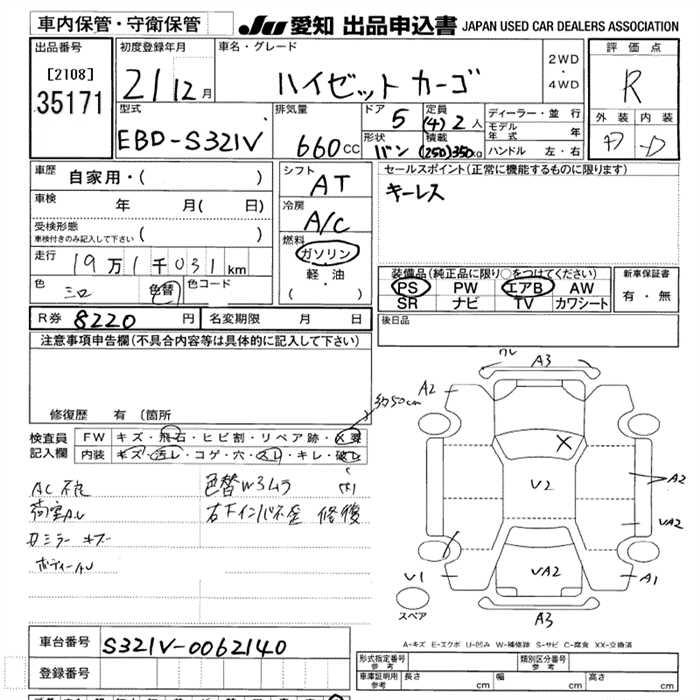 車内保管・守衛保管
JU 愛知 出品申込書 JAPAN USED CAR DEALERS ASSOCIATION
出品番号
[2108]
35171
初度登録年月
21 12月
車名・グレード
ハイゼット カーゴ
2WD
・
4WD
評価点
R
外装 内装
D
型式
EBD-S321V
排気量
660cc
ドア 5
定員 (4) 2人
形状 バン
積載 (250)350kg
ディーラー・並行
モデル年式 年
ハンドル 左・右
車歴
自家用・( )
車検
年 月( 日)
受検形態
車検付きのみ記入して下さい ( )
走行
19万1千031km
色
シロ
色替
色コード
シフト
AT
冷房
A/C
燃料
ガソリン
軽・油
( ・ )
セールスポイント(正常に機能するものに限ります)
キーレス
装備品(純正品に限り○をつけてください)
PS PW エアB AW
SR ナビ TV カワシート
新車保証書
有・無
R券 8220円
名変期限 月 日
後日品
注意事項申告欄(不具合内容等は具体的に記入して下さい)
修復歴 有(箇所
約50cm
検査員記入欄
FW キズ・飛石・ヒビ割・リペア跡・X要
内装 キズ・汚レ・コゲ・穴・スレ・キレ・破レ
色替Wろムラ
右下インパネ歪 修復
カミラー キズ
A3
A2
X
V2
A2
VA2
VA2
V1
A1
A3
スペア
A-キズ E-エクボ U-凹み W-補修跡 S-サビ C-腐食 XX-交換済
車台番号 S321V-0062140
登録番号
形式指定番号 参考
類別区分番号 参考
車庫証明用 参考
長さ cm
幅 cm
高さ cm